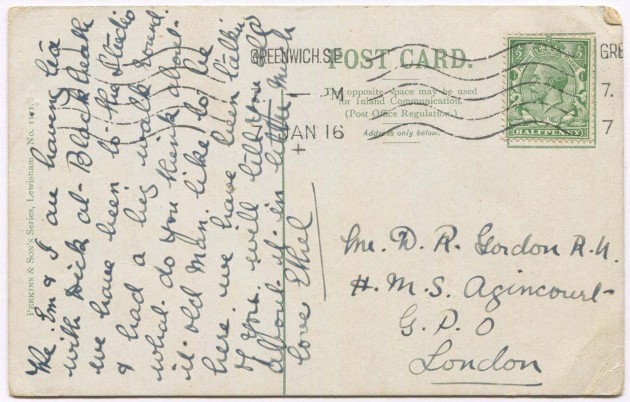 POST CARD.
The opposite space may be used
for Inland Communication.
(Post Office Regulation.)
Address only below.
GREENWICH.S.E
GRE
M
7.
JAN 16
7
+
HALFPENNY
PERKINS & SON'S SERIES, LEWISHAM. No.
The Em & I are having tea
with Dick at Blackheath
we have been to the Studio
& had a big walk round.
what do you think about
it old man. like to be
here. we have been talkin
of you. will tell you all
about it in letter. Much
love Ethel
Mr. D. R. Gordon R.N.
H.M.S. Agincourt
G.P.O
London